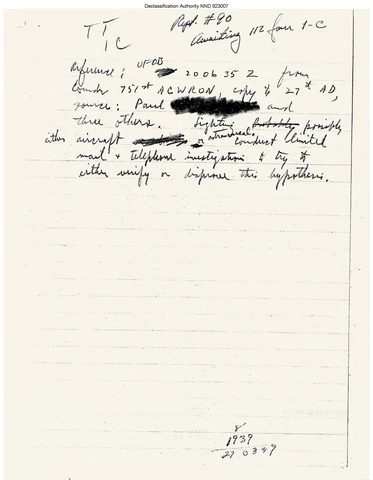 Declassification Authority NND 923007
Rept. #90
TT
IC
Awaiting 112 from 1-C
Reference; UFOB 200635Z from
Comdr 751st ACWRON, copy to 27th AD,
source: Paul and
three others. Sighting Probably possibly
either aircraft or astronomical. Conduct limited
mail & telephone investigation to try to
either verify or disprove this hypothesis.
8
1939
27 0339